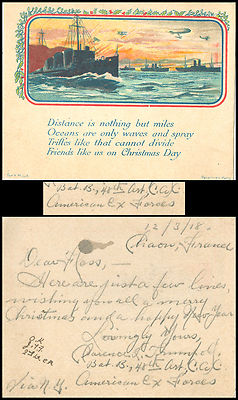 Distance is nothing but miles
Oceans are only waves and spray
Trifles like that cannot divide
Friends like us on Christmas Day
Bat. B, 48th Art. C.A.C.
American Ex Forces
12/3/18.
France
Dear Floss,—
Here are just a few lines,
wishing you all a merry
Christmas and a happy New Year
Lovingly Yours,
Bat. B, 48th Art. C.A.C.
American Ex Forces
Via N.Y.
O.K.